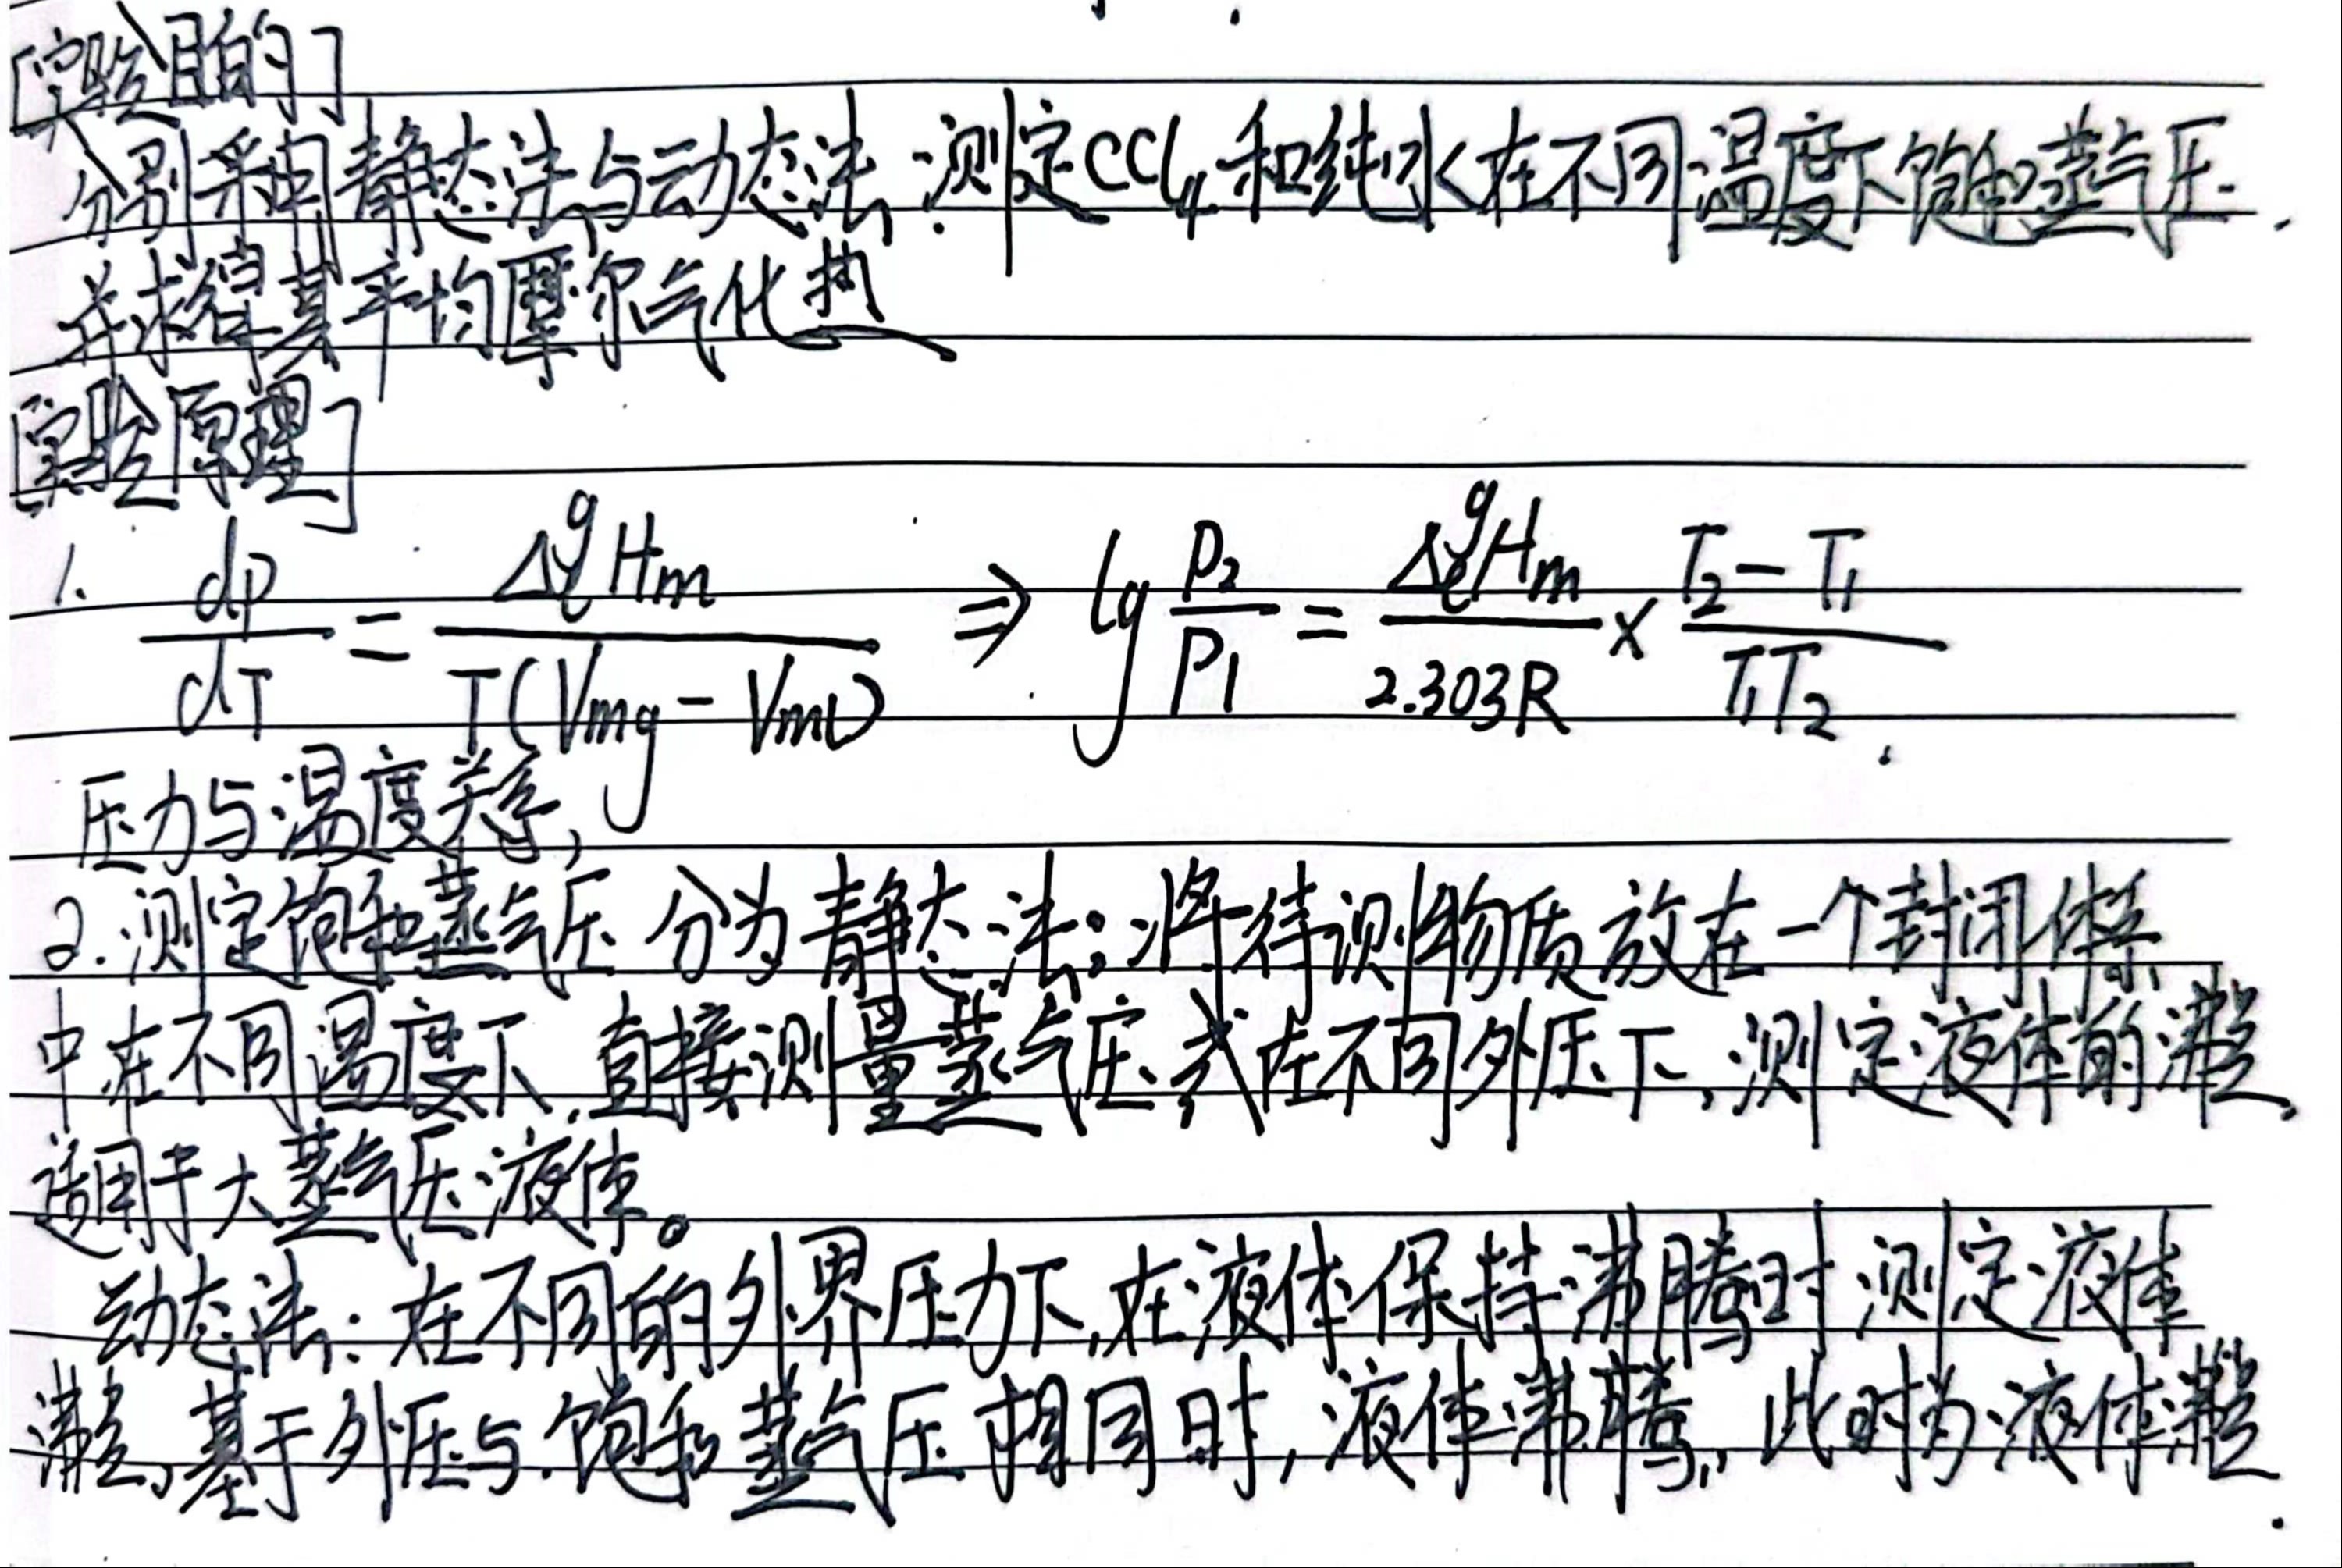 [实验目的]
分别采用静态法与动态法,测定CCl₄和纯水在不同温度下饱和蒸气压.
并求得其平均摩尔气化热
[实验原理]
1. dp/dT = Δ_l^g Hm / T(Vmg - Vml) ⇒ lg P₂/P₁ = Δ_l^g Hm / 2.303R × T₂ - T₁ / T₁T₂.
压力与温度关系,
2.测定饱和蒸气压 分为静态法:将待测物质放在一个封闭体系
中在不同温度下,直接测量蒸气压,或在不同外压下,测定液体的沸点,
适用于大蒸气压液体。
动态法:在不同的外界压力下,在液体保持沸腾时测定液体
沸点,基于外压与饱和蒸气压相同时,液体沸腾,此时为液体沸点.